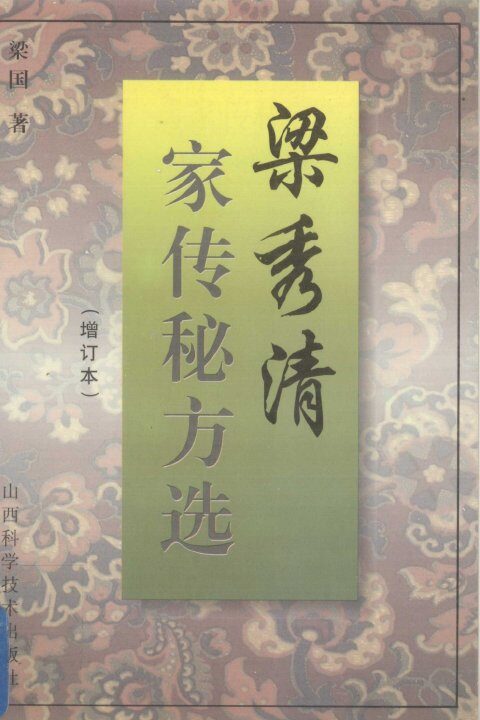 梁秀清
家传秘方选
（增订本）
梁国 著
山西科学技术出版社